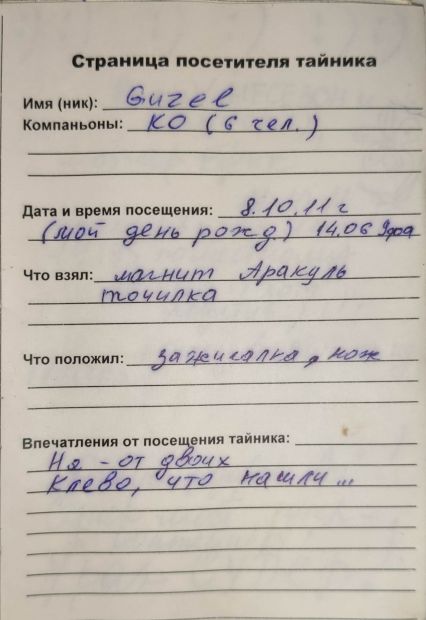 Страница посетителя тайника
Имя (ник): Guzel
Компаньоны: КО (6 чел.)
Дата и время посещения: 8.10.11 г
(мой день рожд.) 14.06
Что взял: магнит Аракуль
точилка
Что положил: зажигалка, нож
Впечатления от посещения тайника:
Ня - от двоих
Клёво, что нашли...